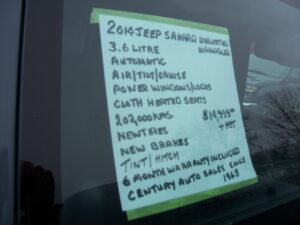 2014 JEEP SAHARA UNLIMITED
WRANGLER
3.6 LITRE
AUTOMATIC
AIR/TILT/CRUISE
POWER WINDOWS/LOCKS
CLOTH HEATED SEATS
202,000 KMS. $19,999⁰⁰
NEW TIRES + HST
NEW BRAKES
TINT/HITCH
6 MONTH WARRANTY INCLUDED
CENTURY AUTO SALES SINCE
1969